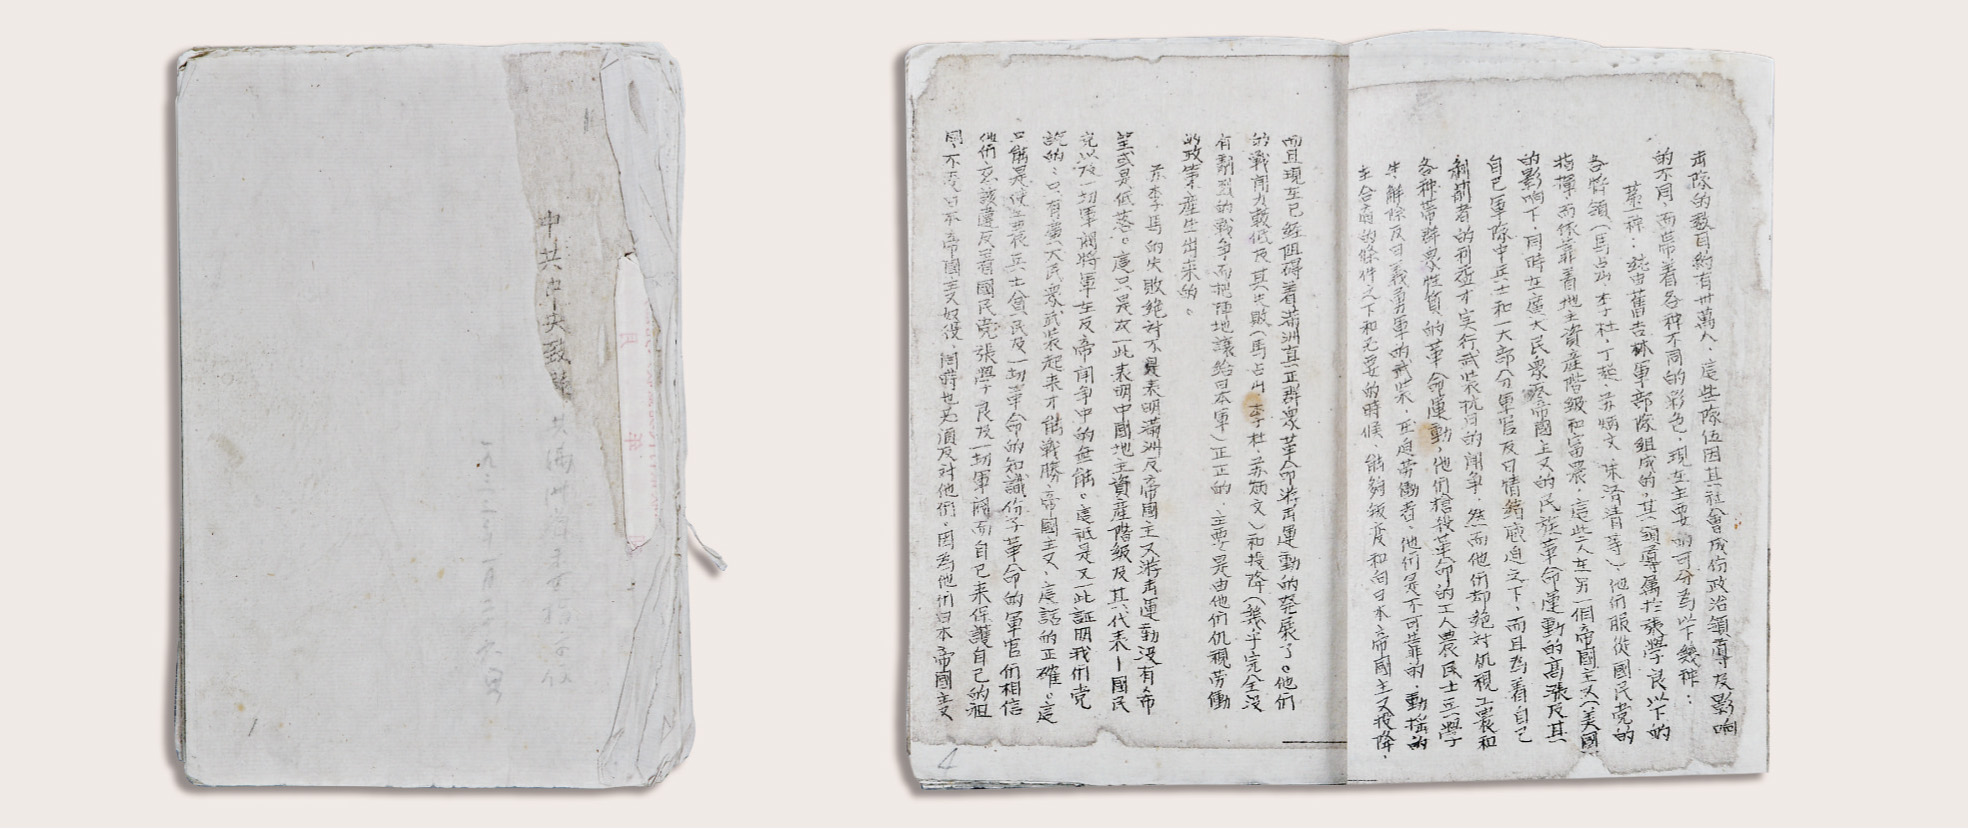 中共中央致
一九三三年一月二十六日
1
击隊的数目約有卅萬人，這些隊伍因其社會成份政治領導及影响
的不同，而帶着各种不同的彩色，現在主要的可分為以下幾种：
第一种：純由舊吉林軍部隊組成的，其領導属於張學良以下的
各將領（馬占山、李杜、丁超、苏炳文、朱济青等）他們服從國民党的
指揮，而依靠着地主資產階級和富農，這些人在另一個帝國主义（美國
的影响下，同時在廣大民眾反帝國主义的民族革命運動的高漲及其
自己軍隊中兵士和一大部分軍官反日情緒底迫之下，而且為着自己
剝削者的利益才实行武装抗日的鬥争，然而他們却絶对仇視工農和
各种帶群眾性質的革命運動，他們槍殺革命的工人農民士兵學
生解除反日義勇軍的武装，压迫劳動者，他們是不可靠的，動搖的
在合適的條件之下和必要的時候，能夠叛度和向日本帝國主义投降，
而且現在已經阻碍着滿洲真正群眾革命游击運動的發展了。他們
的戰鬥力載低及其失敗（馬占山、李杜、苏炳文）和投降（幾乎完全没
有劇烈的戰争而把陣地讓給日本軍）正正的，主要是由他們仇視劳働
的政策產生出来的。
苏李馬的失敗絶对不是表明滿洲反帝國主义游击運動没有希
望或是低落。這只是又一此表明中國地主資産階級及其代表—國民
党以及一切軍閥將軍在反帝鬥争中的無能。這祗是又一此証明我們党
說的：只有廣大民眾武装起来才能戰勝帝國主义，這話的正確。這
只能是使士兵貧民及一切革命的知識份子革命的軍官們相信
他們应該違反着國民党張學良及一切軍閥而自己来保護自己的祖
國，不受日本帝國主义奴役，同時也必須反对他們，因為他們日本帝國主义
4